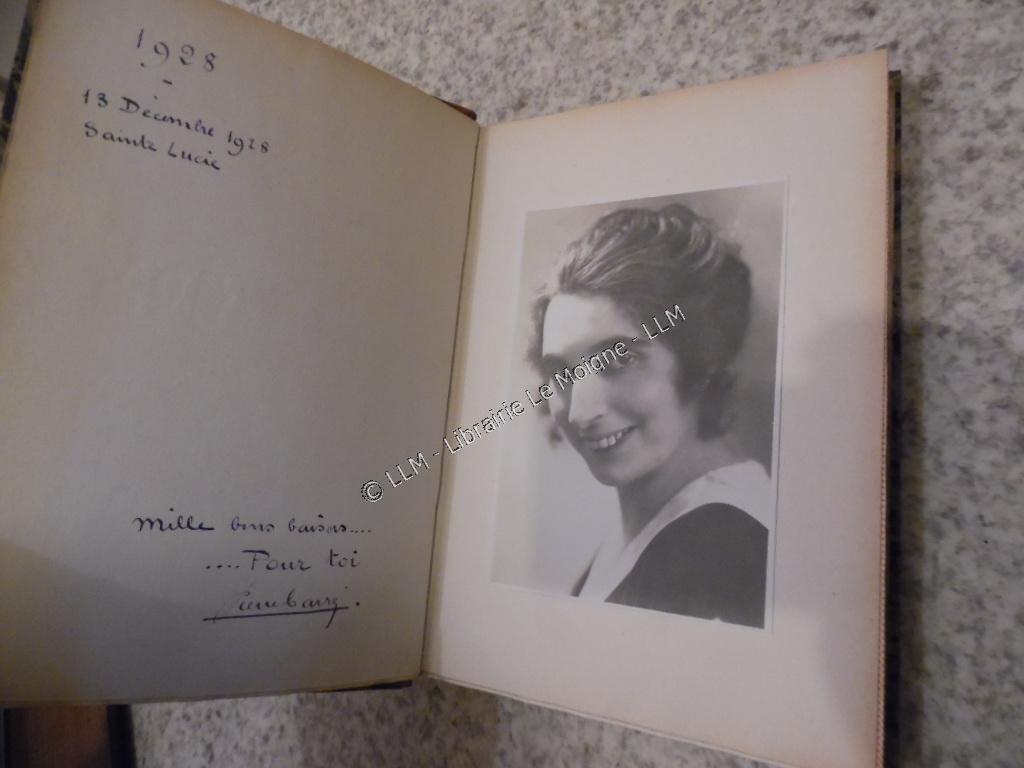 1928
-
13 Décembre 1928
Sainte Lucie
Mille bons baisers....
....Pour toi
© LLM - Librairie Le Moigne - LLM